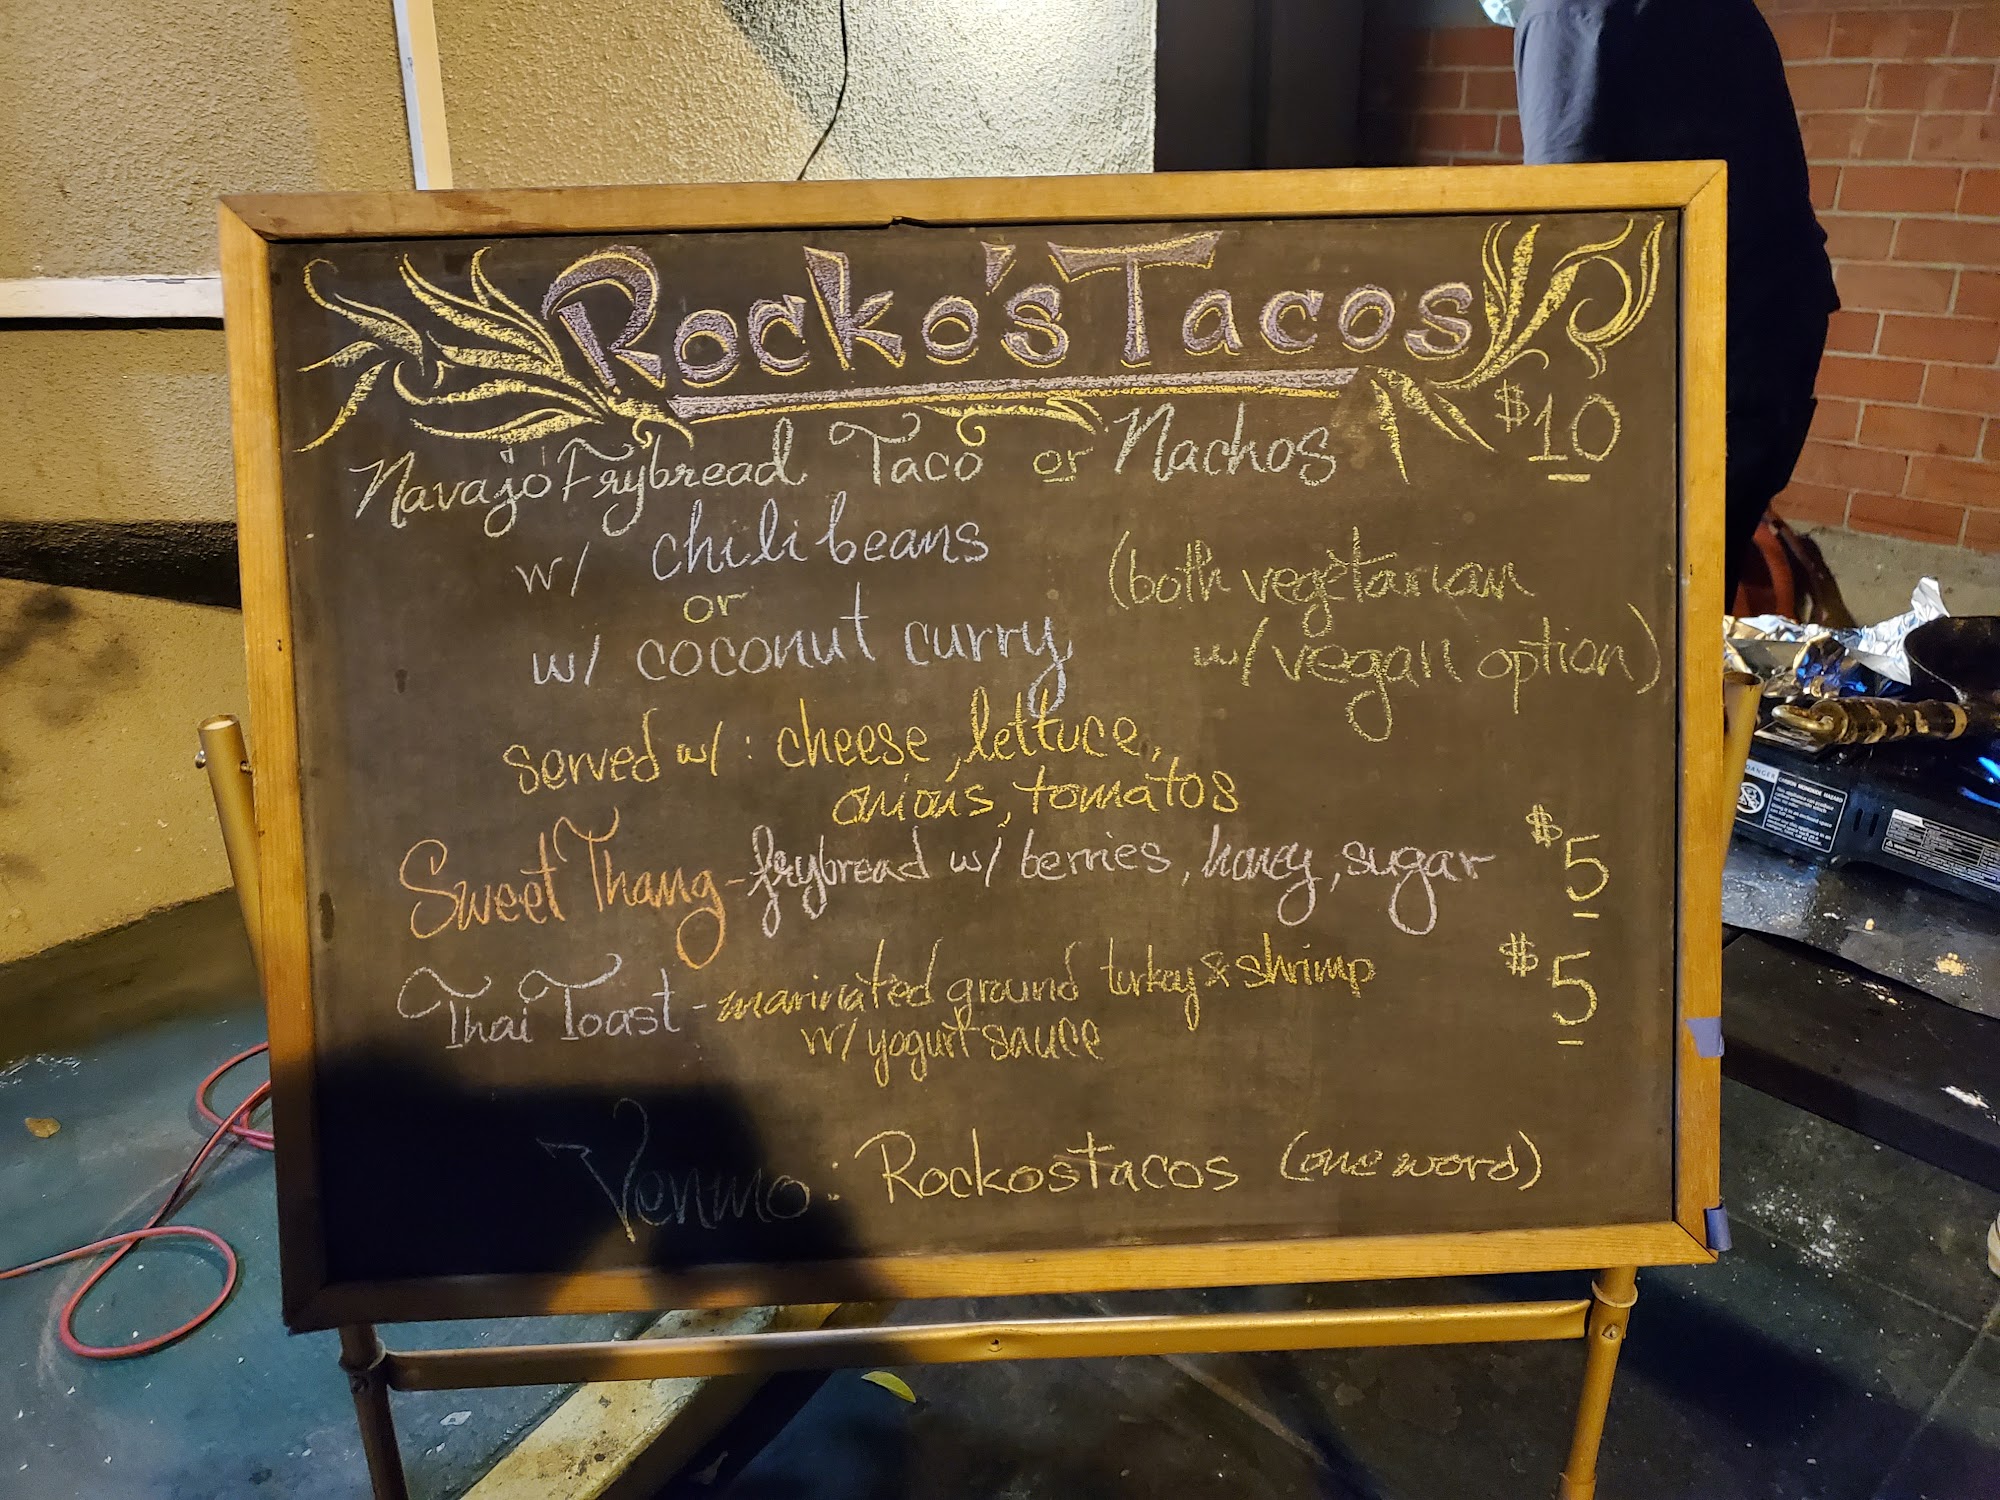 Rocko's Tacos
Navajo Frybread Taco or Nachos $10
w/ chili beans
or
w/ coconut curry
(both vegetarian
w/ vegan option)
served w/: cheese, lettuce,
onions, tomatos
Sweet Thang - frybread w/ berries, honey, sugar $5
Thai Toast - marinated ground turkey & shrimp $5
w/ yogurt sauce
Venmo: Rockostacos (one word)
DANGER
CARBON MONOXIDE HAZARD